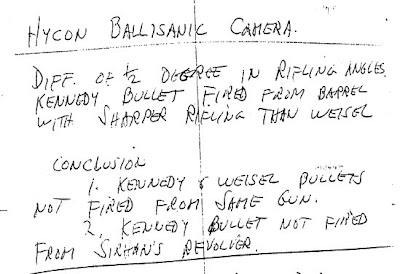 HYCON BALLISANIC CAMERA.
DIFF. OF 1/2 DEGREE IN RIFLING ANGLES
KENNEDY BULLET FIRED FROM BARREL
WITH SHARPER RIFLING THAN WEISEL
CONCLUSION
1. KENNEDY & WEISEL BULLETS
NOT FIRED FROM SAME GUN.
2. KENNEDY BULLET NOT FIRED
FROM SIRHAN'S REVOLVER.